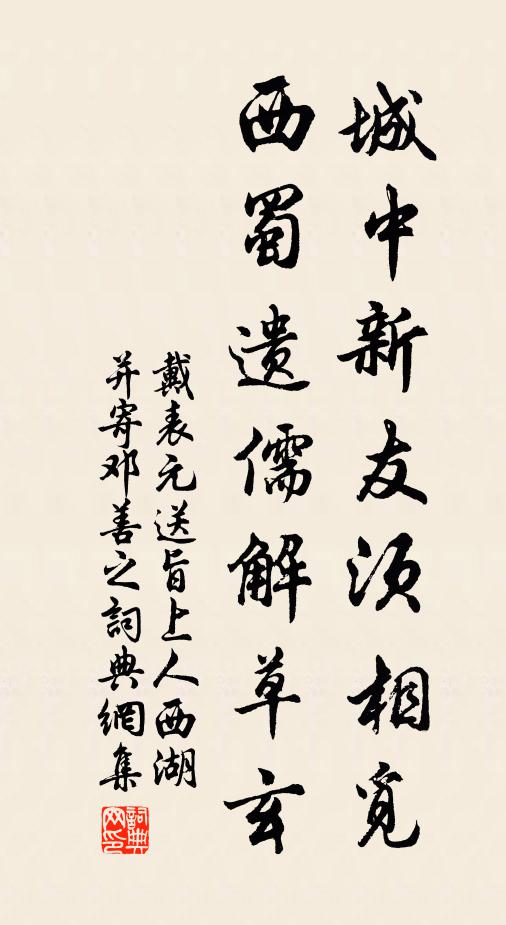 城中新友须相觅
西蜀遗儒解草玄
戴表元送旨上人西湖
并寄邓善之詞典網集
詞典网印